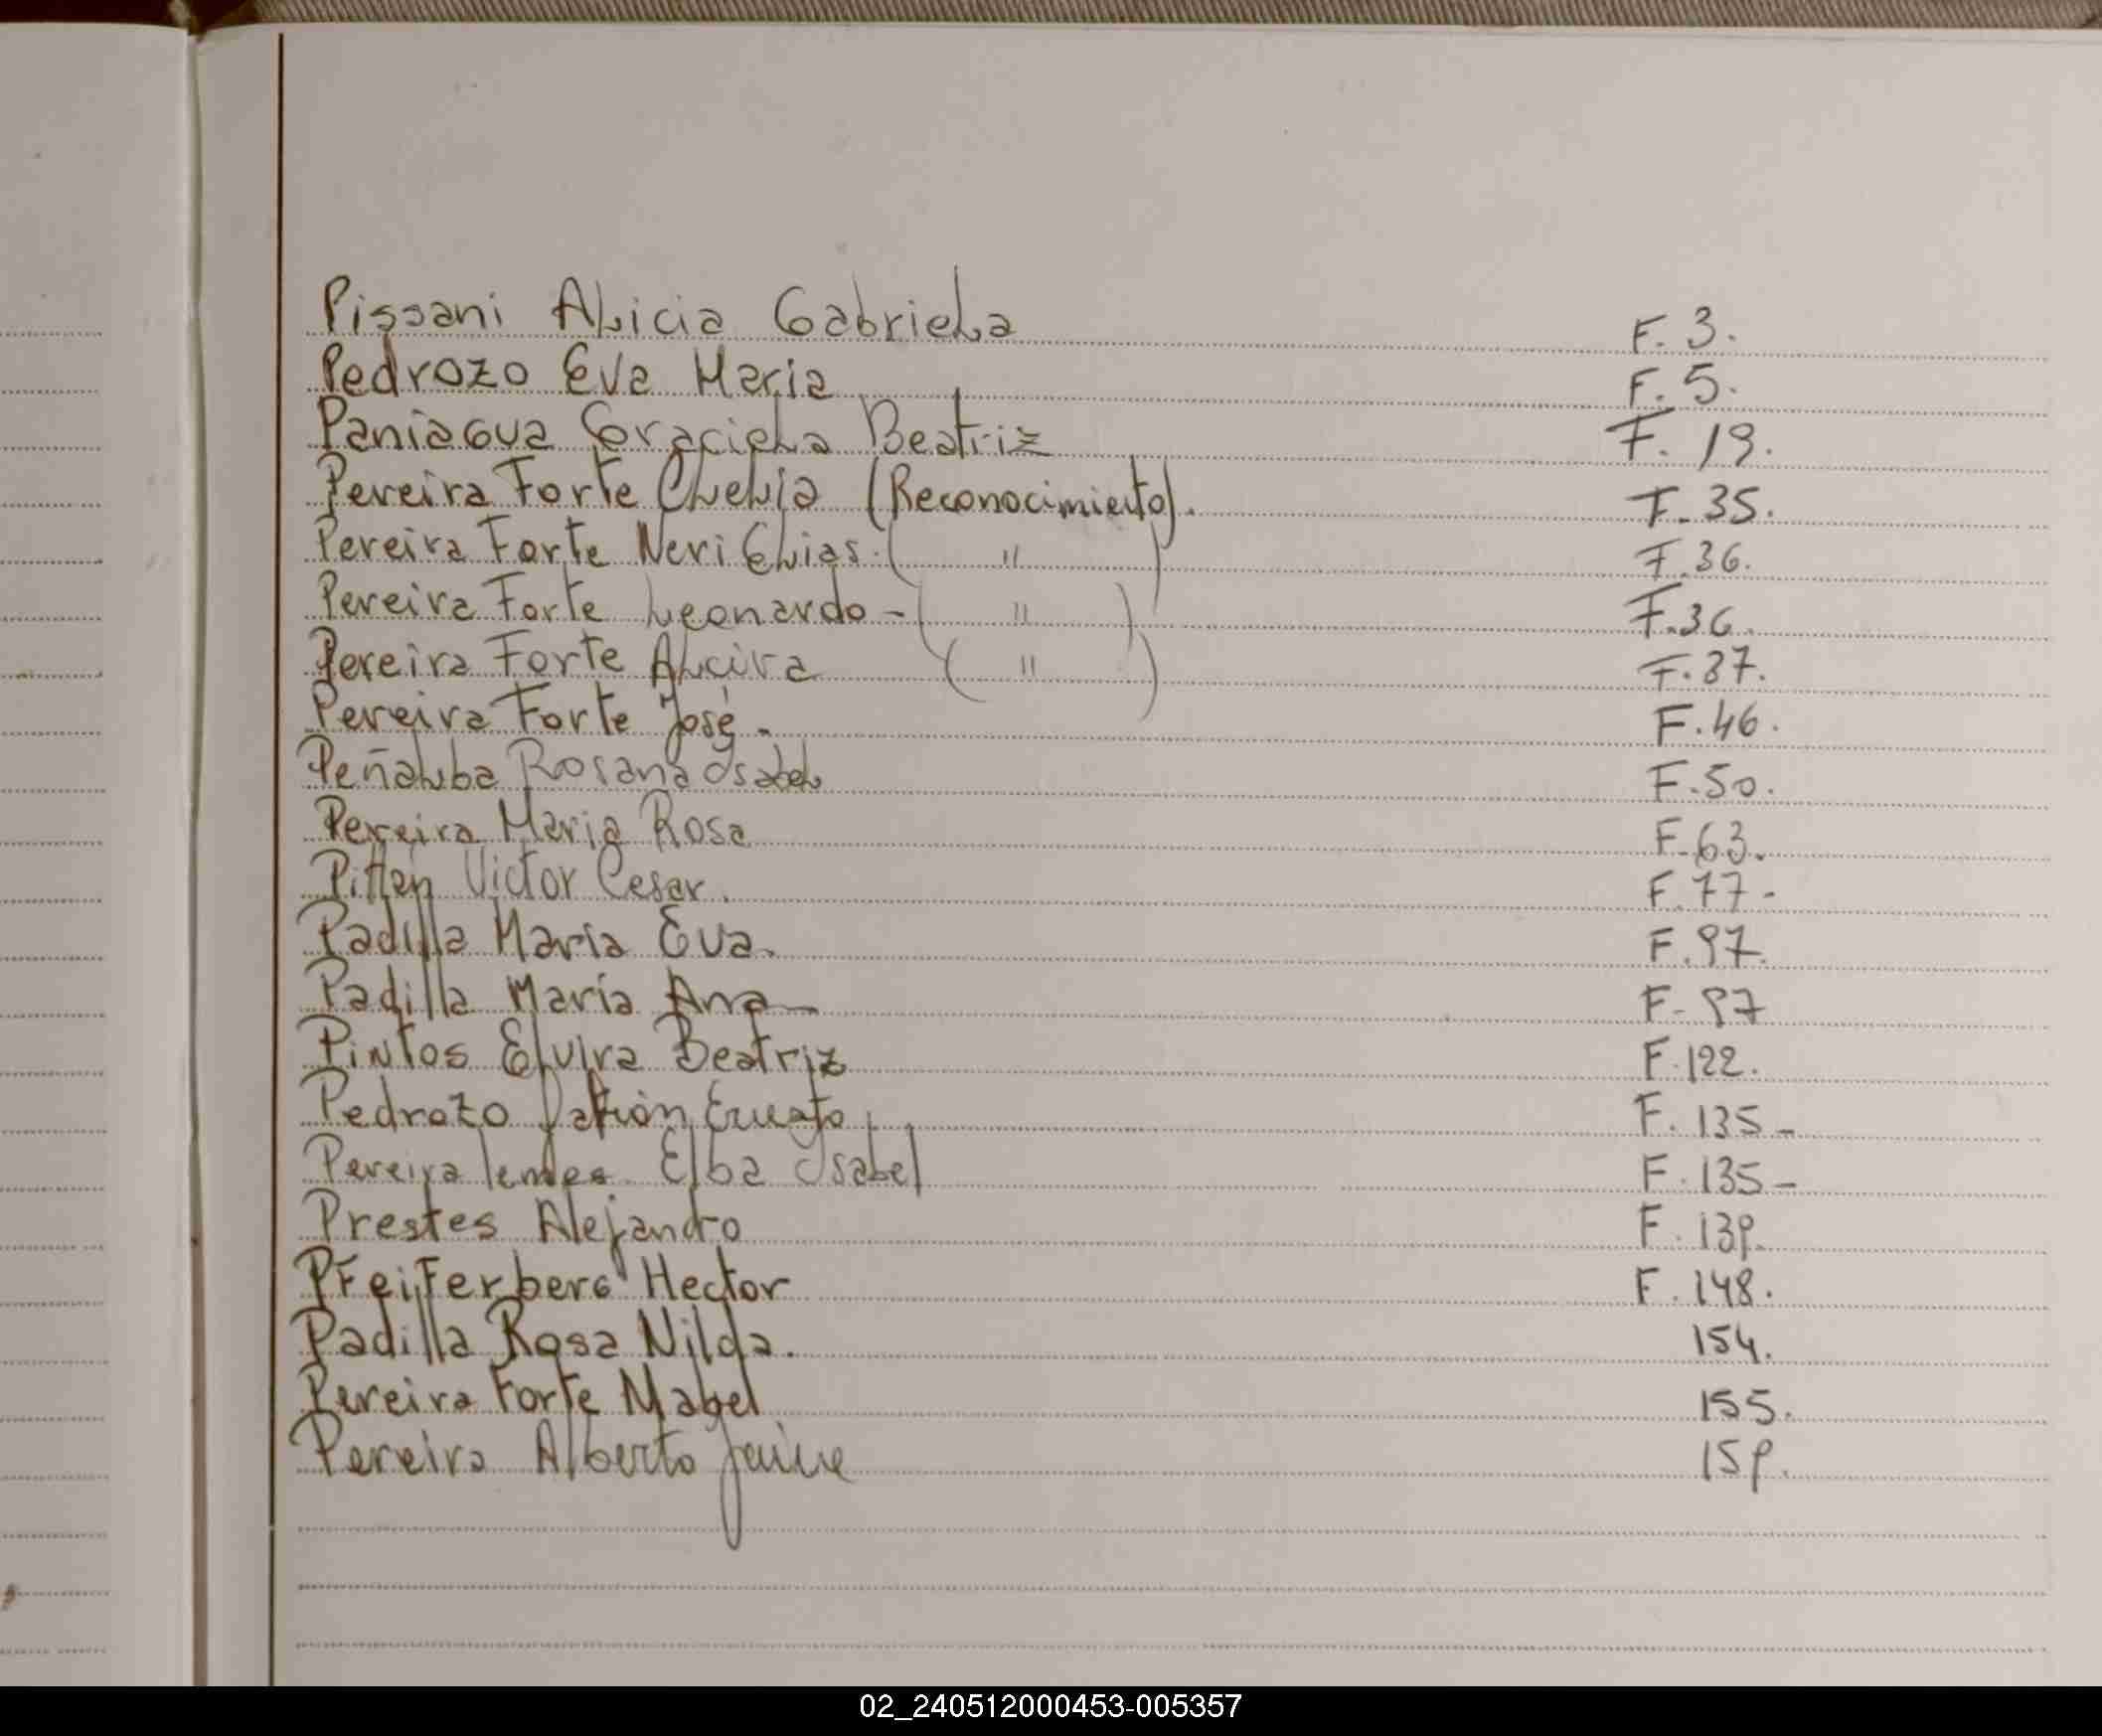 Pissani Alicia Gabriela F. 3.
Pedrozo Eva Maria F. 5.
Paniagua Graciela Beatriz F. 19.
Pereira Forte Clelia (Reconocimiento). F. 35.
Pereira Forte Neri Elias. ( " ) F. 36.
Pereira Forte Leonardo - ( " ) F. 36.
Pereira Forte Alcira ( " ) F. 37.
Pereira Forte José. F. 46.
Peñalba Rosana Isabel F. 50.
Pereira Maria Rosa F. 63.
Pittan Victor Cesar. F. 77-
Padilla María Eva. F. 97.
Padilla María Ana- F- 97
Pintos Elvira Beatriz F. 122.
Pedrozo Ernesto. F. 135-
Pereira lemes Elba Isabel F. 135-
Prestes Alejandro F. 139.
Pfeiferberg Hector F. 148.
Padilla Rosa Nilda. 154.
Pereira Forte Mabel 155.
Pereira Alberto Jaime 159.
02_240512000453-005357